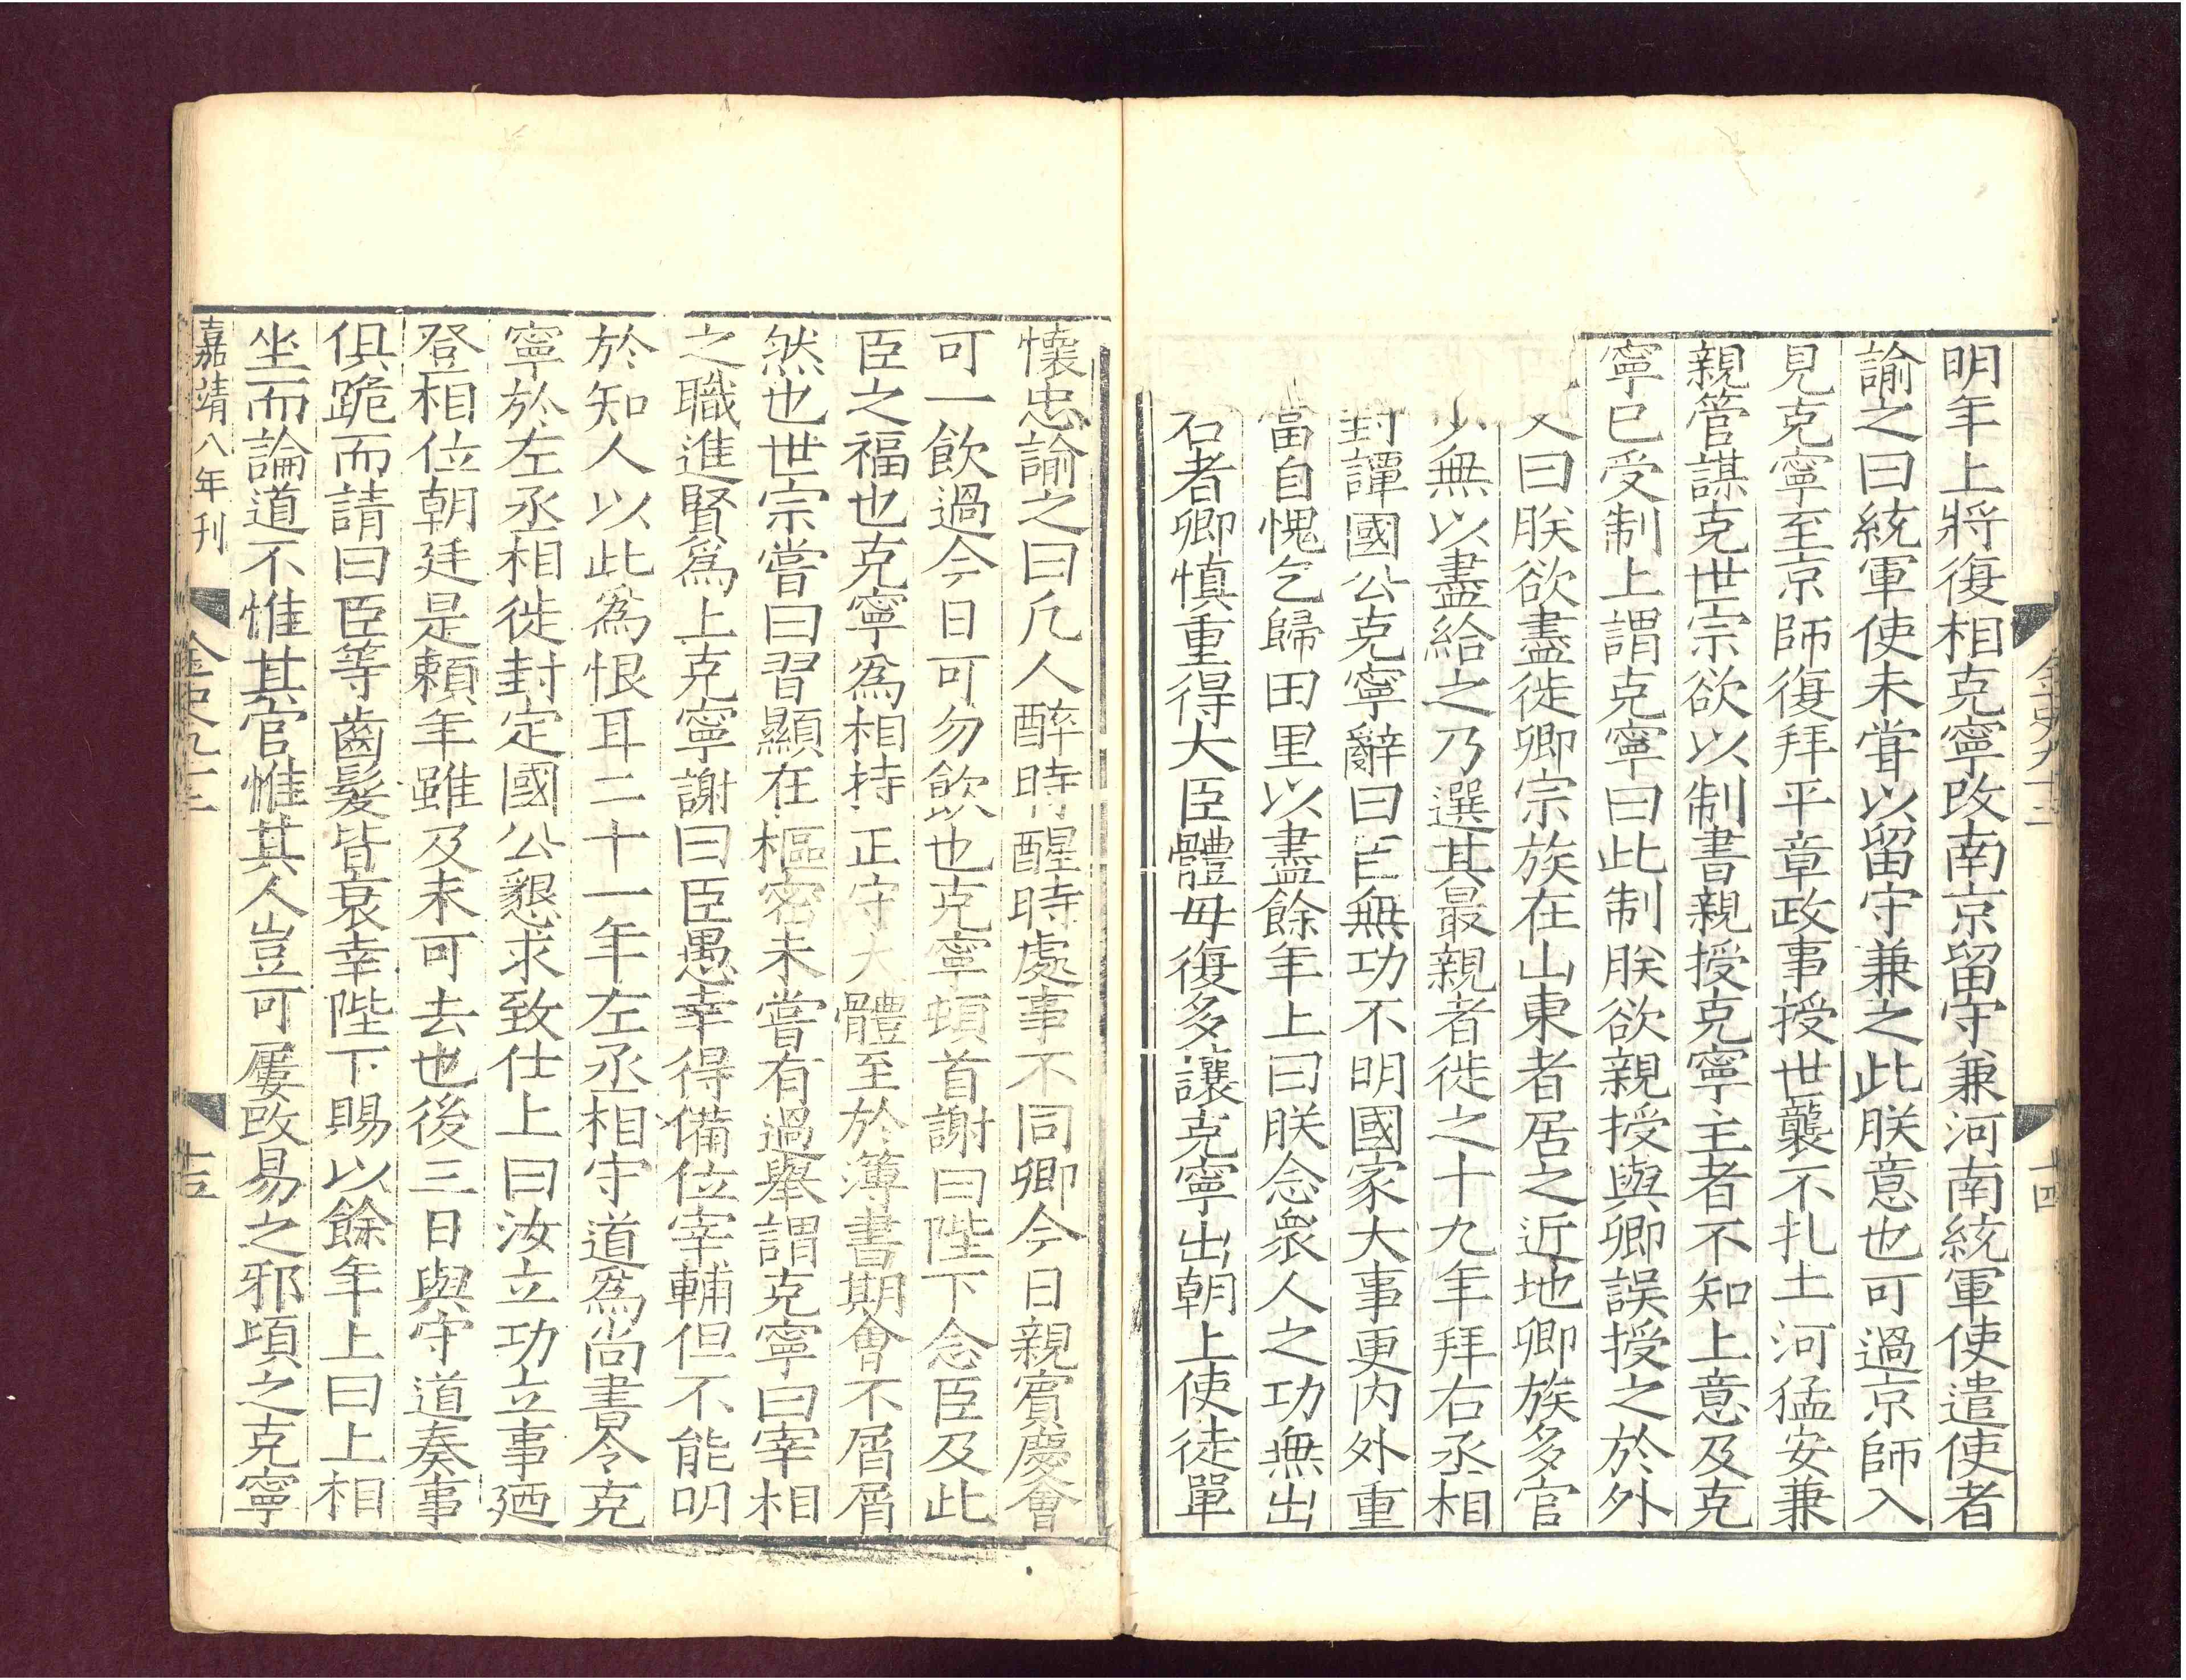 明年上將復相克寧改南京留守兼河南統軍使遣使者
諭之曰統軍使未嘗以留守兼之此朕意也可過京師入
見克寧至京師復拜平章政事授世襲不扎土河猛安兼
親管謀克世宗欲以制書親授克寧主者不知上意及克
寧已受制上謂克寧曰此制朕欲親授與卿誤授之於外
又曰朕欲盡徙卿宗族在山東者居之近地卿族多官
少無以盡給之乃選其最親者徙之十九年拜右丞相
封譚國公克寧辭曰臣無功不明國家大事更內外重
當自愧乞歸田里以盡餘年上曰朕念衆人之功無出
右者卿慎重得大臣體毋復多讓克寧出朝上使徒單
金史九十二
十四
懷忠諭之曰凡人醉時醒時處事不同卿今日親賓慶會
可一飲過今日可勿飲也克寧頓首謝曰陛下念臣及此
臣之福也克寧爲相持正守大體至於簿書期會不屑屑
然也世宗嘗曰習顯在樞密未嘗有過舉謂克寧曰宰相
之職進賢爲上克寧謝曰臣愚幸得備位宰輔但不能明
於知人以此爲恨耳二十一年左丞相守道爲尚書令克
寧於左丞相徙封定國公懇求致仕上曰汝立功立事廼
登相位朝廷是賴年雖及未可去也後三日與守道奏事
俱跪而請曰臣等齒髮皆衰幸陛下賜以餘年上曰上相
坐而論道不惟其官惟其人豈可屢改易之邪頃之克寧
嘉靖八年刊